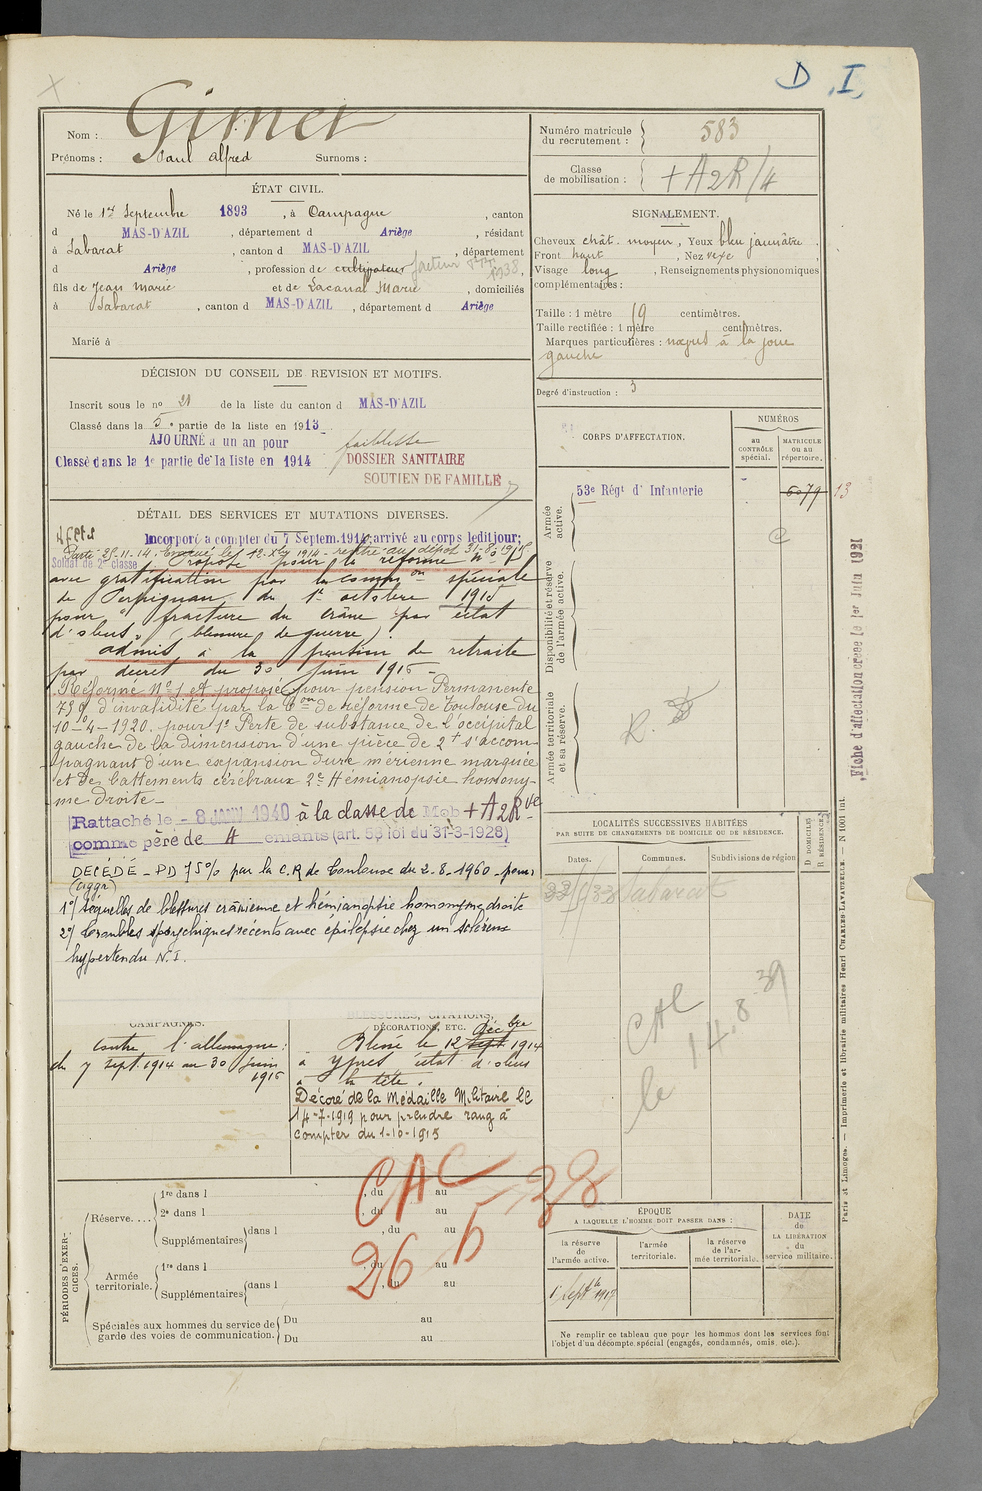 D. I.
Nom : Gimet
Prénoms : Paul Alfred Surnoms :
ÉTAT CIVIL.
Né le 1er Septembre 1893, à Campagne, canton
d MAS-D'AZIL, département d Ariège, résidant
à Sabarat, canton d MAS-D'AZIL, département
d Ariège, profession de cultivateur facteur 1938,
fils de Jean Marie et de Lacanal Marie, domiciliés
à Sabarat, canton d MAS-D'AZIL, département d Ariège
Marié à
DÉCISION DU CONSEIL DE REVISION ET MOTIFS.
Inscrit sous le no 21 de la liste du canton d MAS-D'AZIL
Classé dans la 5e partie de la liste en 1913
AJOURNÉ a un an pour faiblesse
Classé dans la 1e partie de la liste en 1914 DOSSIER SANITAIRE
SOUTIEN DE FAMILLE
DÉTAIL DES SERVICES ET MUTATIONS DIVERSES.
Incorporé a compter du 7 Septem. 1914, arrivé au corps ledit jour;
Parti 25.11.14. Evacué le 12 Xbre 1914 - rentré au dépôt 31-8-1915
Soldat de 2e classe Proposé pour la réforme No 1
avec gratification par la common spéciale
de Perpignan du 1er octobre 1915
pour "fracture du crâne par éclat
d'obus" (blessure de guerre).
admis à la pension de retraite
par décret du 30 juin 1916 -
Réformé No 1 et proposé pour pension Permanente
75% d'invalidité par la Con de Réforme de Toulouse du
10-4-1920. pour 1o Perte de substance de l'occipital
gauche de la dimension d'une pièce de 2f s'accom-
pagnant d'une expansion dure mérienne marquée
et de battements cérébraux 2o Hémianopsie homony-
me droite -
Rattaché le - 8 JANV 1940 à la classe de Mob + A2R ve
comme père de 4 enfants (art. 58 loi du 31-3-1928)
DÉCÉDÉ - PD 75% par la C.R de Toulouse du 2-8-1960 - pour:
(aggr)
1o/ Séquelles de blessures crânienne et hémianopsie homonyme droite
2o/ troubles psychiques récents avec épilepsie chez un scléreux
hypertendu N.I.
CAMPAGNES.
Contre l'allemagne:
du 7 sept. 1914 au 30 juin
1916
BLESSURES, CITATIONS,
DÉCORATIONS, ETC.
Blessé le 12 Sept. décbre 1914
à Ypres éclat d'obus
à la tête.
Décoré de la Médaille Militaire le
14-7-1919 pour prendre rang à
compter du 1-10-1915
PÉRIODES D'EXERCICES.
Réserve....
1re dans l , du au
2e dans l , du au
Supplémentaires dans l , du au
Armée territoriale.
1re dans l , du au
Supplémentaires dans l , du au
Spéciales aux hommes du service de garde des voies de communication.
Du au
Du au
CAC 38
26 5
Numéro matricule du recrutement : 583
Classe de mobilisation : + A2R/4
SIGNALEMENT.
Cheveux chât. moyen, Yeux bleu jaunâtre,
Front haut, Nez vexe,
Visage long, Renseignements physionomiques
complémentaires :
Taille : 1 mètre 69 centimètres.
Taille rectifiée : 1 mètre centimètres.
Marques particulières : nœpus à la joue
gauche
Degré d'instruction : 3
CORPS D'AFFECTATION.
NUMÉROS
AU CONTRÔLE spécial.
MATRICULE OU AU répertoire.
Armée active.
53e Régt d' Infanterie 6079 13
Disponibilité et réserve de l'armée active.
Armée territoriale et sa réserve.
Fiche d'affectation créée le 1er Juin 1921
LOCALITÉS SUCCESSIVES HABITÉES
PAR SUITE DE CHANGEMENTS DE DOMICILE OU DE RÉSIDENCE.
D. DOMICILES R. RÉSIDENCES
Dates. Communes. Subdivisions de région
Sabarat
CAC
le 14.8.39
ÉPOQUE
A LAQUELLE L'HOMME DOIT PASSER DANS :
la réserve de l'armée active.
l'armée territoriale.
la réserve de l'armée territoriale.
DATE de LA LIBÉRATION du service militaire.
1 septbre 1917
Ne remplir ce tableau que pour les hommes dont les services font
l'objet d'un décompte spécial (engagés, condamnés, omis, etc.).
Paris et Limoges. — Imprimerie et librairie militaires Henri CHARLES-LAVAUZELLE. — N 1001 int.